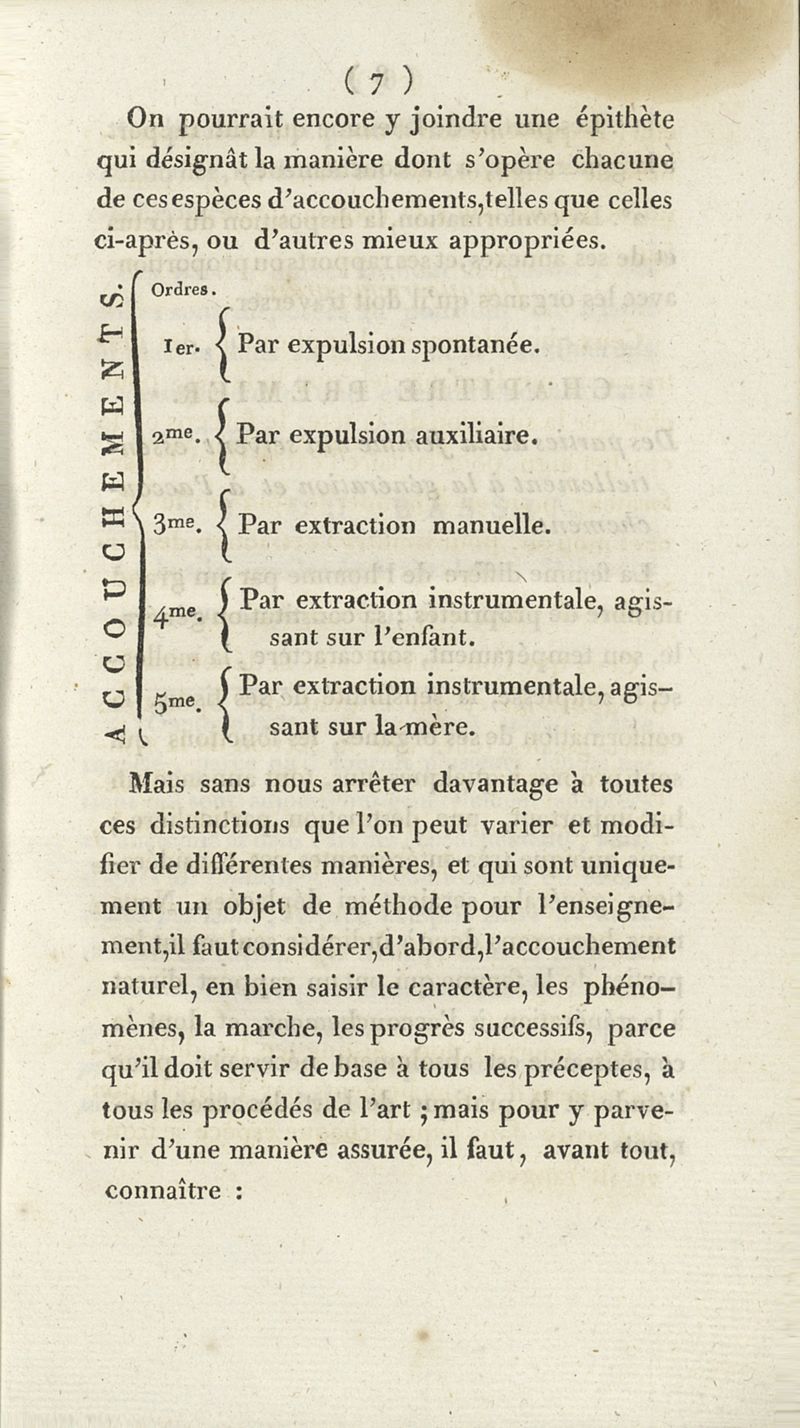 ( 7 )
On pourrait encore y joindre une épithète
qui désignât la manière dont s'opère chacune
de ces espèces d'accouchements, telles que celles
ci-après, ou d'autres mieux appropriées.
ACCOUCHEMENTS.
Ordres.
1er. { Par expulsion spontanée.
2me. { Par expulsion auxiliaire.
3me. { Par extraction manuelle.
4me. { Par extraction instrumentale, agis-
sant sur l'enfant.
5me. { Par extraction instrumentale, agis-
sant sur la mère.
Mais sans nous arrêter davantage à toutes
ces distinctions que l'on peut varier et modi-
fier de différentes manières, et qui sont unique-
ment un objet de méthode pour l'enseigne-
ment, il faut considérer, d'abord, l'accouchement
naturel, en bien saisir le caractère, les phéno-
mènes, la marche, les progrès successifs, parce
qu'il doit servir de base à tous les préceptes, à
tous les procédés de l'art ; mais pour y parve-
nir d'une manière assurée, il faut, avant tout,
connaître :